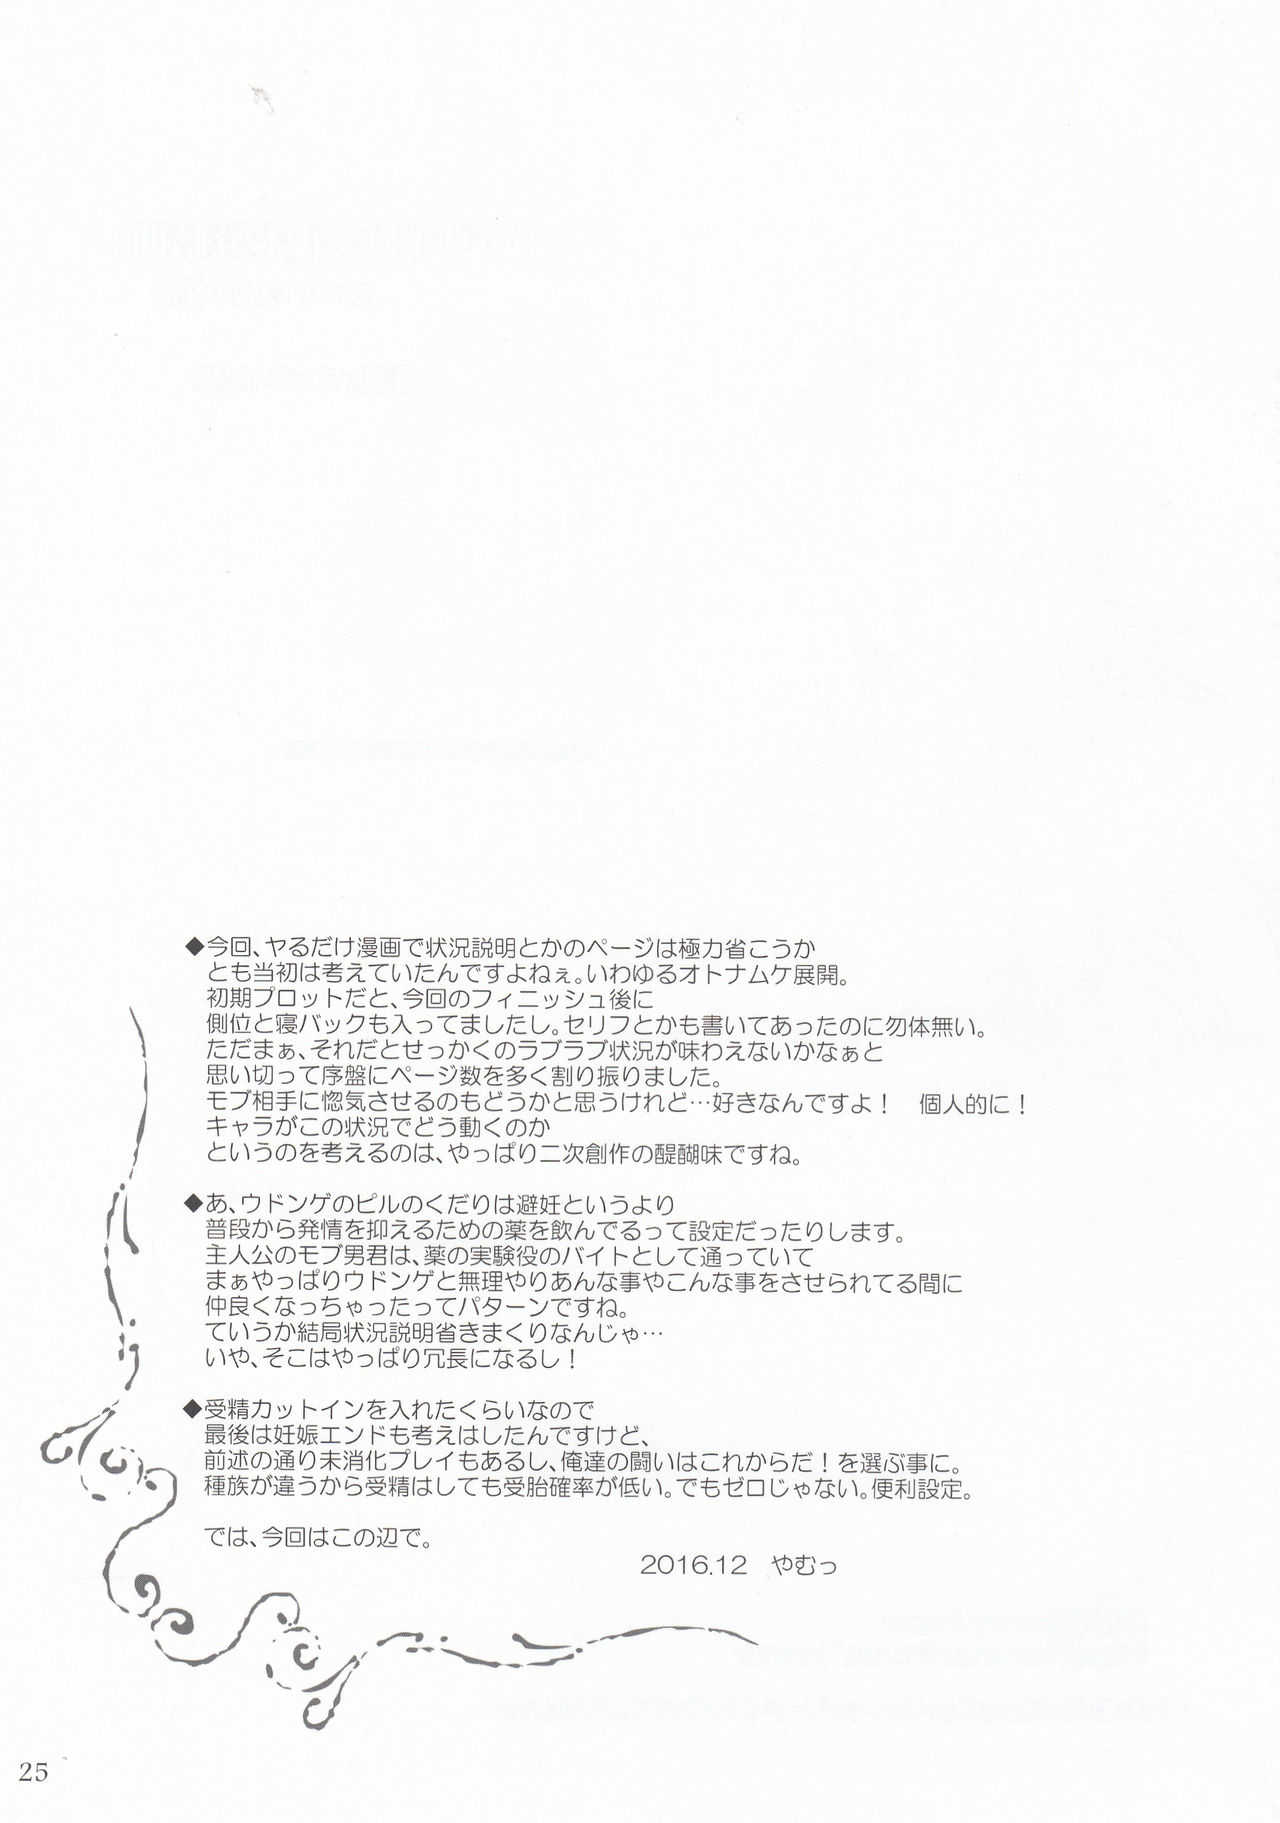 ◆今回、ヤるだけ漫画で状況説明とかのページは極力省こうか
とも当初は考えていたんですよねぇ。いわゆるオトナムケ展開。
初期プロットだと、今回のフィニッシュ後に
側位と寝バックも入ってましたし。セリフとかも書いてあったのに勿体無い。
ただまぁ、それだとせっかくのラブラブ状況が味わえないかなぁと
思い切って序盤にページ数を多く割り振りました。
モブ相手に惚気させるのもどうかと思うけれど…好きなんですよ！　個人的に！
キャラがこの状況でどう動くのか
というのを考えるのは、やっぱり二次創作の醍醐味ですね。
◆あ、ウドンゲのピルのくだりは避妊というより
普段から発情を抑えるための薬を飲んでるって設定だったりします。
主人公のモブ男君は、薬の実験役のバイトとして通っていて
まぁやっぱりウドンゲと無理やりあんな事やこんな事をさせられてる間に
仲良くなっちゃったってパターンですね。
ていうか結局状況説明省きまくりなんじゃ…
いや、そこはやっぱり冗長になるし！
◆受精カットインを入れたくらいなので
最後は妊娠エンドも考えはしたんですけど、
前述の通り未消化プレイもあるし、俺達の闘いはこれからだ！を選ぶ事に。
種族が違うから受精はしても受胎確率が低い。でもゼロじゃない。便利設定。
では、今回はこの辺で。
2016.12　やむっ
25